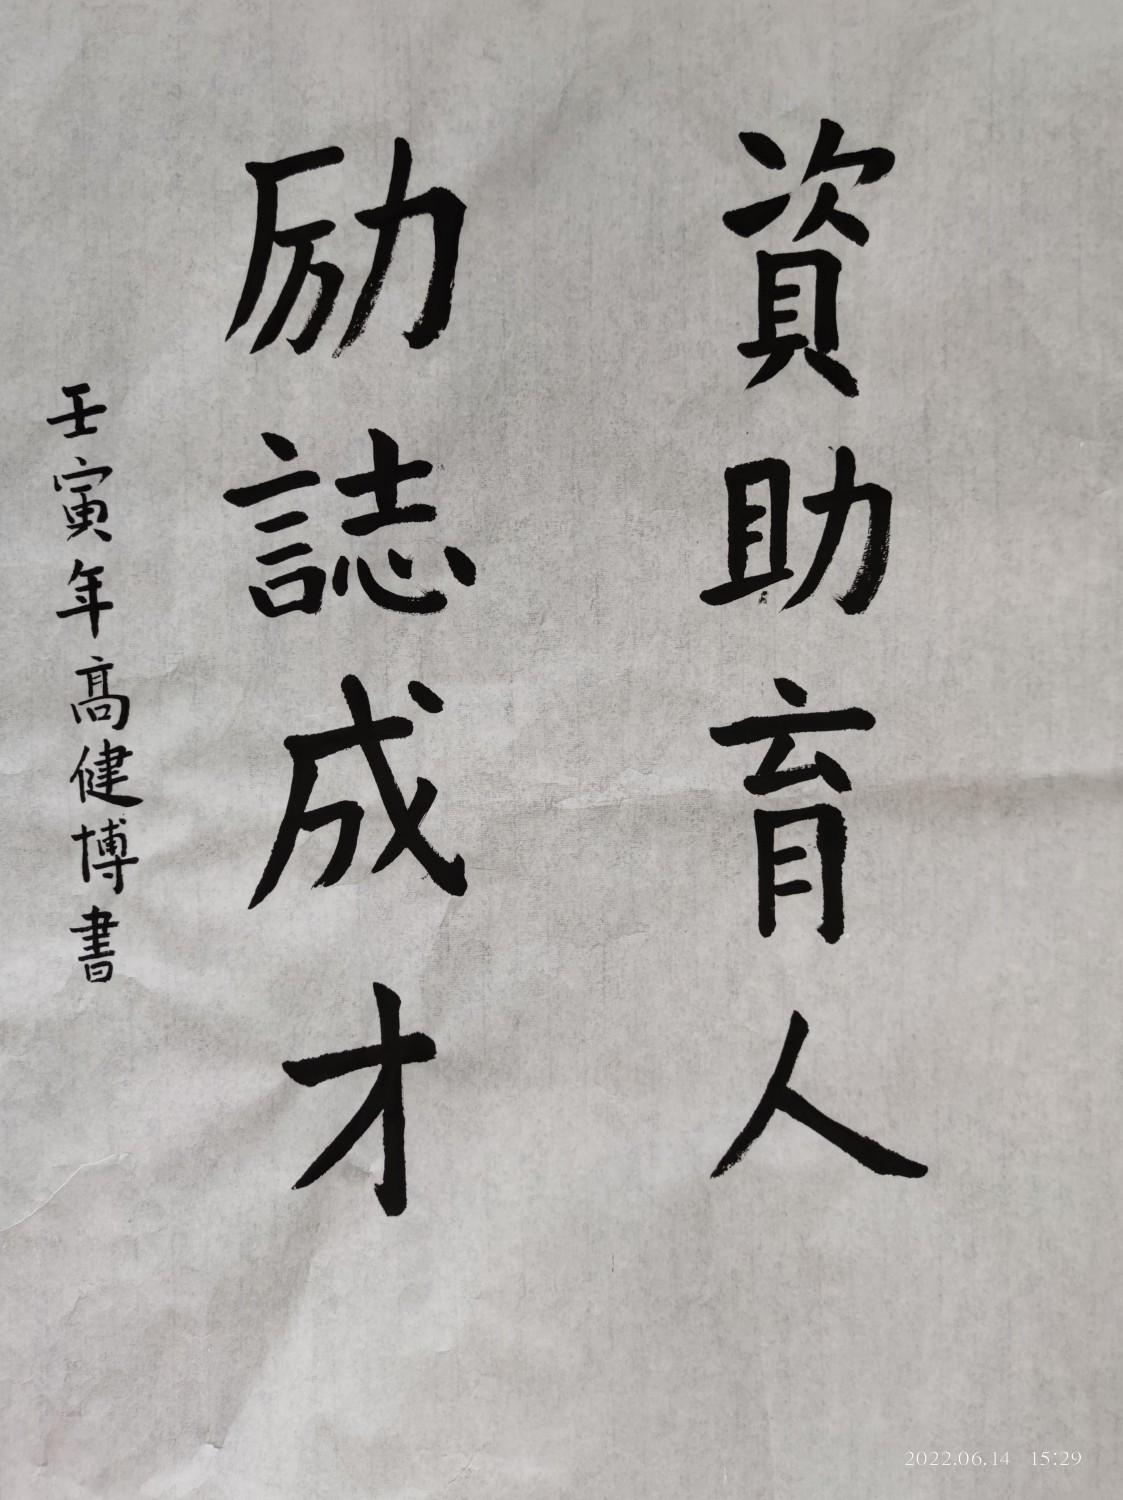 資助育人
励誌成才
壬寅年高健博書
2022.06.14 15:29